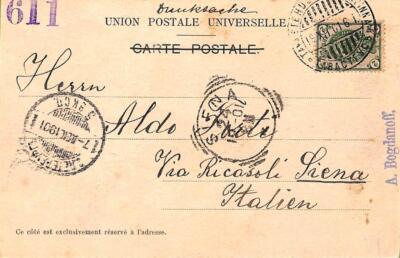 611
Drucksache
UNION POSTALE UNIVERSELLE.
CARTE POSTALE.
Herrn
Aldo
SIENA
Via Ricasoli Siena
Italien
A. Bogdanoff,
Ce côté est exclusivement réservé à l'adresse.